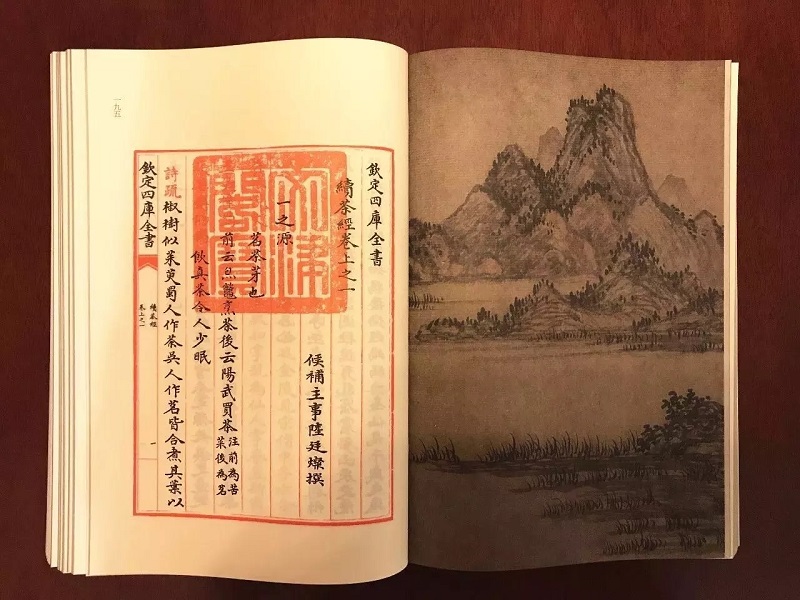 欽定四庫全書
續茶經卷上之一
候補主事陸廷燦撰
一之源
茗茶芽也
前云炰鼈烹茶後云陽武買茶注前為苦
菜後為茗
飲真茶令人少眠
詩疏椒樹似茱萸蜀人作茶吳人作茗皆合煮其葉以
欽定四庫全書
續茶經
卷上之一
一
一九五
文淵閣寶